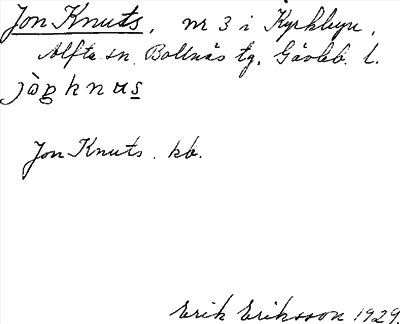 Jon Knuts, nr 3 i Kyrkbyn,
Alfta sn. Bollnäs tg. Gävleb. l.
Jon Knuts. kb.
Erik Eriksson 1929.